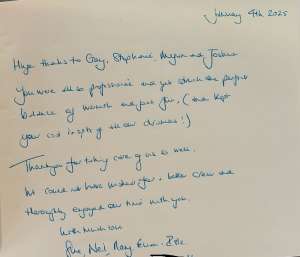 January 9th 2025
Huge thanks to Gary, Stephanie, and
You were all so professional and yet struck the perfect
balance of warmth and fun, (and kept
your cool in spite of all our !)
Thank you for taking care of us so well.
We could not have wished for a better crew and
thoroughly enjoyed our time with you.
With much love
Sue, Neil,